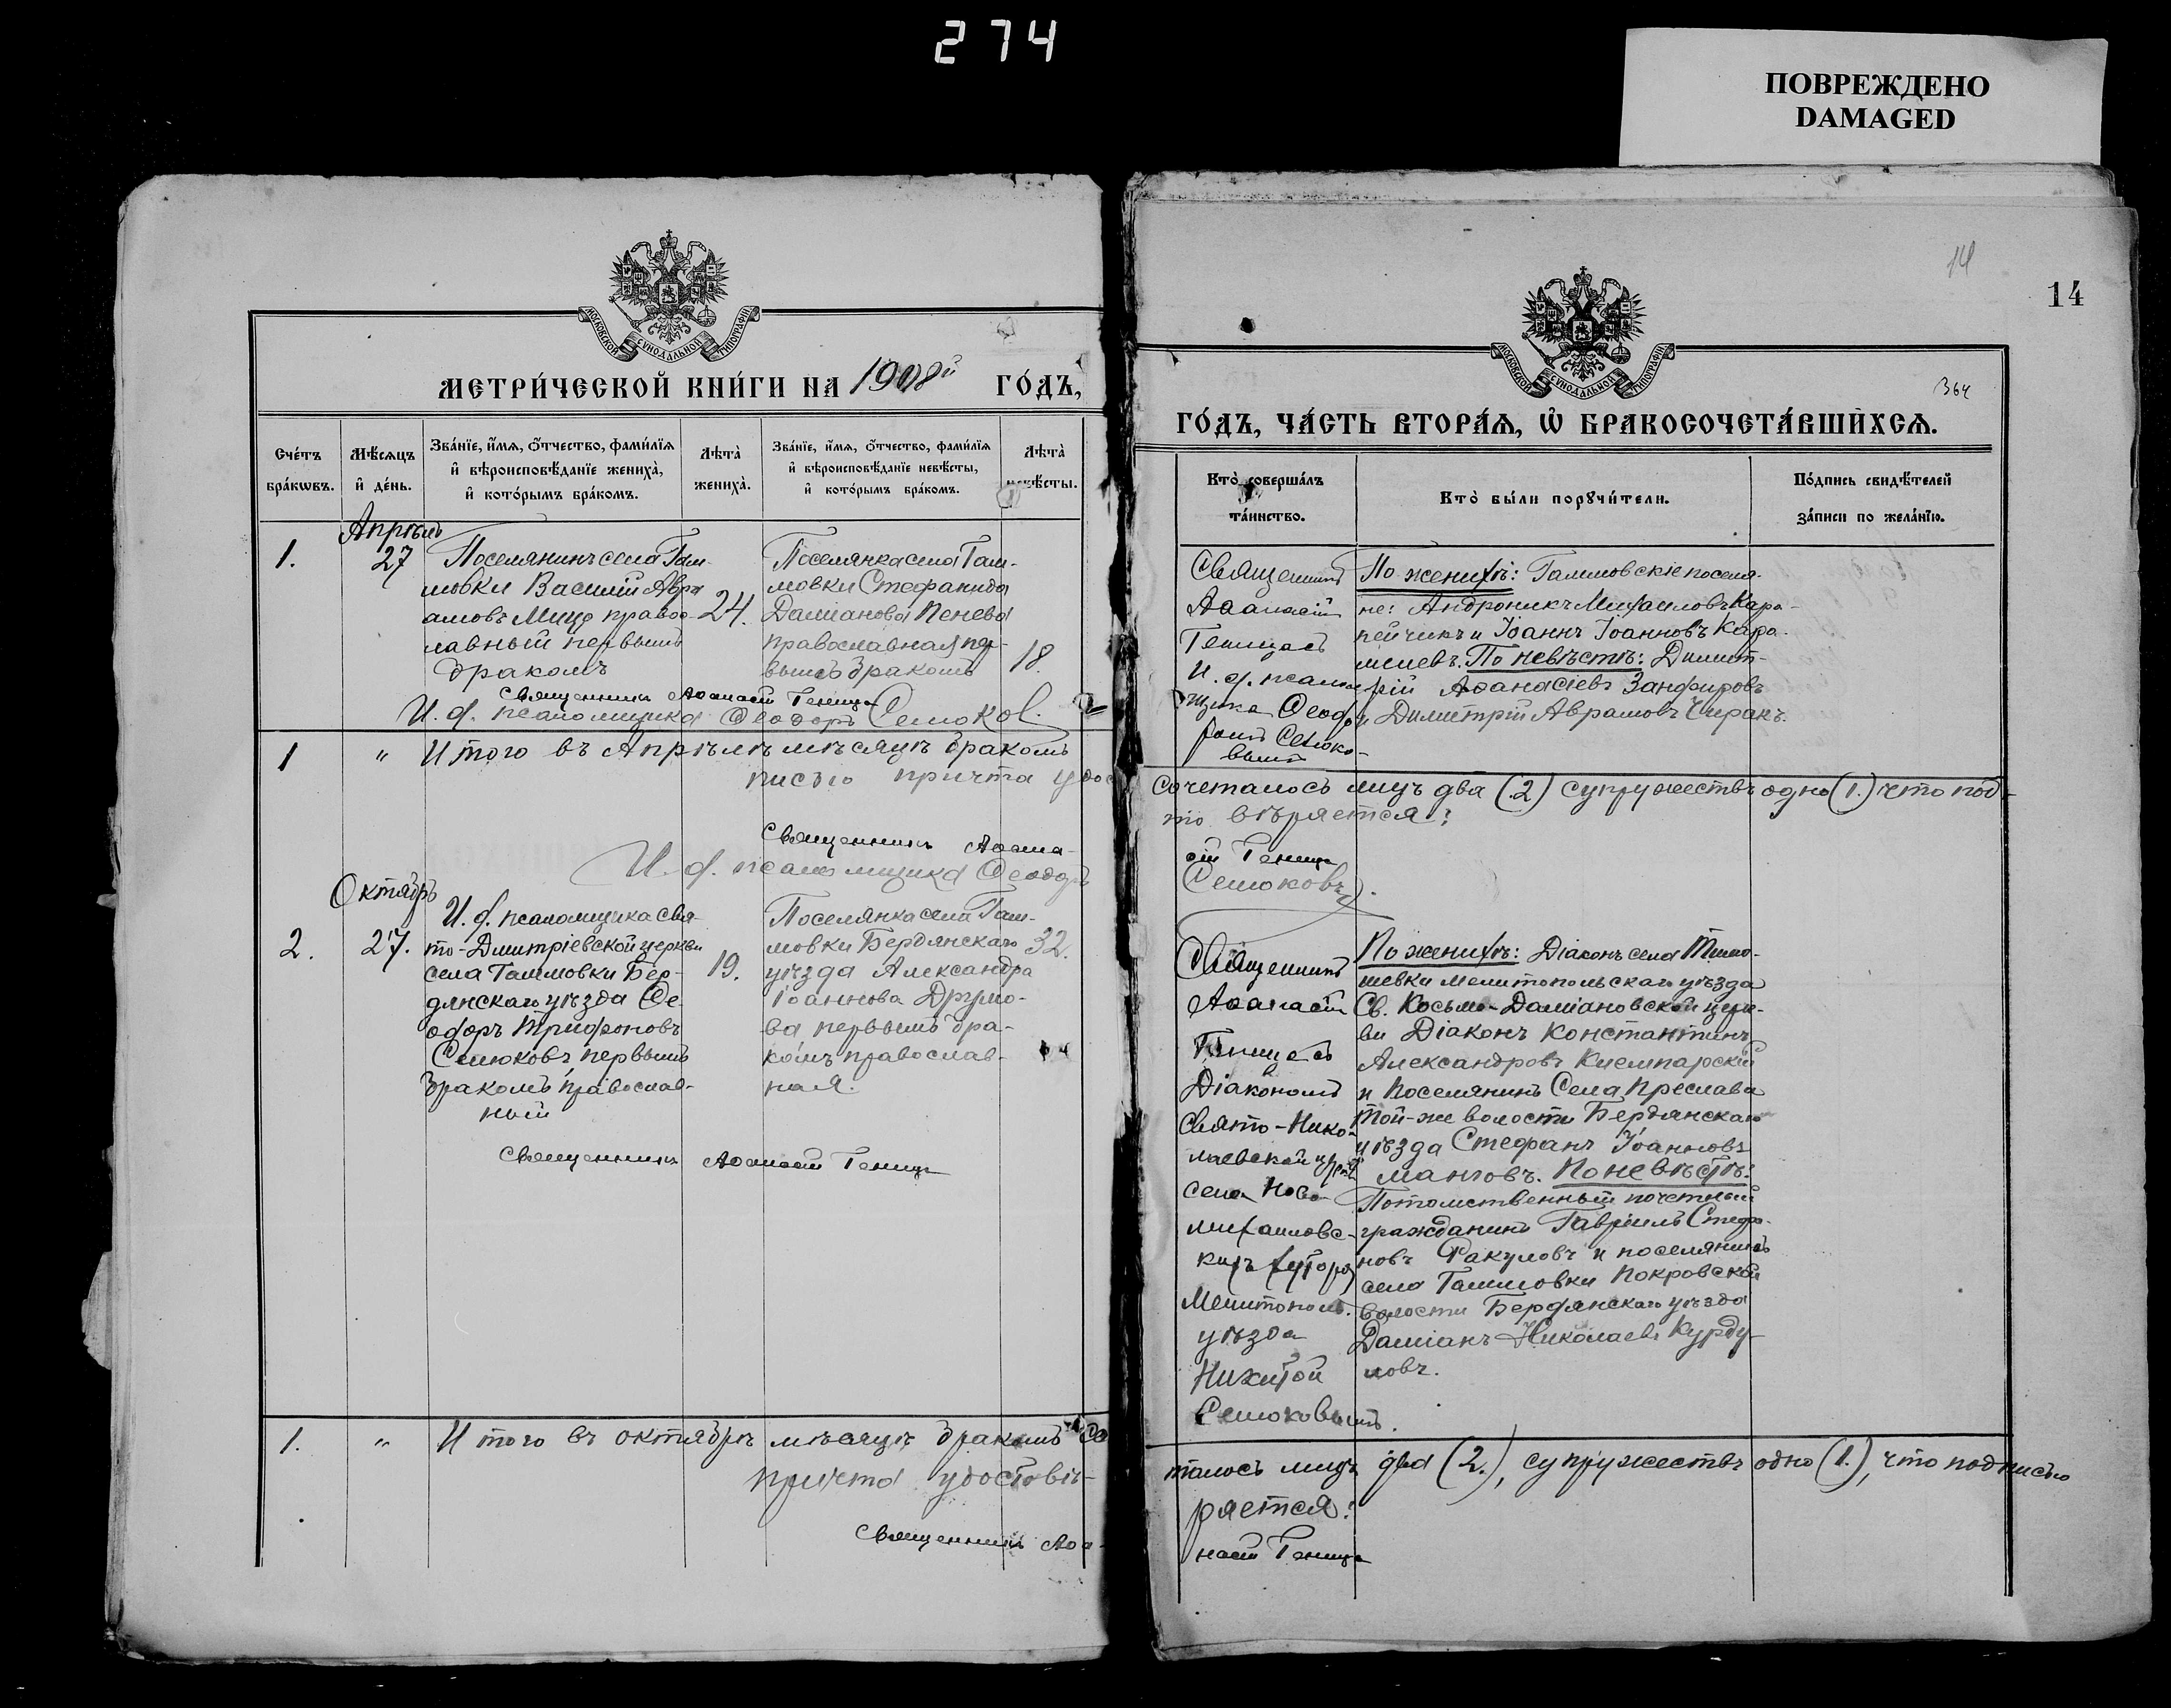 274
ПОВРЕЖДЕНО
DAMAGED
МОСКОВСКОЙ СѴНОДАЛЬНОЙ ТИПОГРАФІИ
МЕТРИ́ЧЕСКОЙ КНИ́ГИ НА 1908й ГО́ДЪ,
Сче́тъ бра́кѡвъ.
Мѣ́сяцъ и҆ де́нь.
Зва́нїе, и҆́мѧ, ѻ҆́тчество, фами́лїѧ и҆ вѣроисповѣ́данїе жениха̀, и҆ кото́рымъ бра́комъ.
Лѣта̀ жениха̀.
Зва́нїе, и҆́мѧ, ѻ҆́тчество, фами́лїѧ и҆ вѣроисповѣ́данїе невѣ́сты, и҆ кото́рымъ бра́комъ.
Лѣта̀ невѣ́сты.
1.
Апрѣль
27
Поселянинъ села Гам-
мовки Василій Авра
амовъ Мицо правос-
лавный первымъ
бракомъ
24.
Поселянка села Гам-
мовки Стефанида
Даміанова Пенева
православная пер-
вымъ бракомъ
18.
Священникъ Аѳанасій Геница
И. д. псаломщика Ѳеодоръ Семоков.
1 " Итого въ Апрѣлѣ мѣсяцѣ бракомъ
писью причта удос
Священникъ Аѳана-
И. д. псаломщика Ѳеодоръ
2.
Октябрь
27.
И. д. псаломщика Свя-
то-Дмитріевской церкви
села Гаммовки Бер-
дянскаго уѣзда Ѳе-
одоръ Трифоновъ
Семоковъ первымъ
бракомъ, православ-
ный
19.
Поселянка села Гам-
мовки Бердянскаго
уѣзда Александра
Іоаннова Друмо-
ва первымъ бра-
комъ православ-
ная.
32.
Священникъ Аѳанасій Геница
1. " Итого въ октябрѣ мѣсяцѣ бракомъ со
причта удостовѣ-
Священникъ Аѳа-
14
14
364
МОСКОВСКОЙ СѴНОДАЛЬНОЙ ТИПОГРАФІИ
ГО́ДЪ, ЧА́СТЬ ВТОРА́Ѧ, Ѡ҆ БРАКОСОЧЕТА́ВШИХСѦ.
Кто̀ соверша́лъ та́инство.
Кто̀ бы́ли порꙋчи́тели.
По́дпись свидѣ́телей за́писи по жела́нїю.
Священникъ
Аѳанасій
Геница съ
И. д. псалом
щика Ѳеодо
ромъ Семоко-
вымъ
По женихѣ: Гаммовскіе поселя-
не: Андроникъ Михаиловъ Кара-
пейчикъ и Іоаннъ Іоанновъ Кара-
мелевъ. По невѣстѣ: Димит-
рій Аѳанасіевъ Занфировъ
и Димитрій Аврамовъ Чиракъ.
сочеталось лицъ два (2) супружествъ одно (1.) что под-
то вѣряется:
сій Геница
Семоковъ.
Священникъ
Аѳанасій
Геница съ
Діакономъ
Свято-Нико-
лаевской церкви
села Ново-
михаиловс-
кихъ хуторо
Мелитопол.
уѣзда
Никитой
Семоковымъ.
По женихѣ: Діаконъ села Тимо-
шевки мелитопольскаго уѣзда
Св. Косьмо-Даміановской церк-
ви Діаконъ Константинъ
Александровъ
и Поселянинъ Села Преслава
той-же волости Бердянскаго
уѣзда Стефанъ Іоанновъ
Манговъ. По невѣстѣ:
Потомственный почетный
гражданинъ Гавріилъ Стефа-
новъ Ракуловъ и поселянинъ
села Гаммовки Покровской
волости Бердянскаго уѣзда
Даміанъ Николаевъ Курду-
мовъ.
талось лицъ два (2.), супружествъ одно (1.), что подписью
ряется:
насій Геница